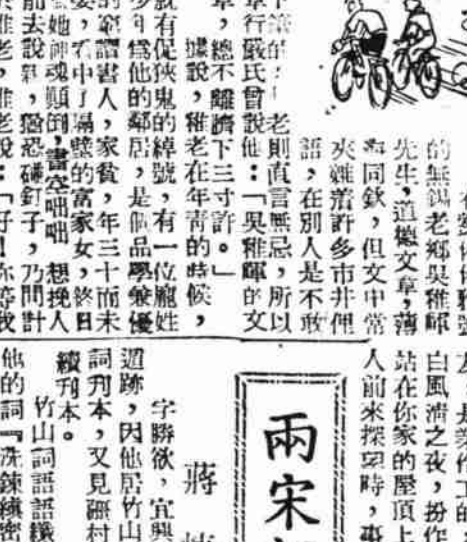 的無錫老鄉吳稚暉
先生，道德文章，薄
海同欽，但文中常
夾雜着許多市井俚
語，在別人是不敢
下筆的，老則直言無忌，所以
章行嚴氏曾說他：「吳稚暉的文
章，總不離臍下三寸許。」
據說，稚老在年靑的時候，
就有促狹鬼的綽號，有一位龐姓
少年爲他的鄰居，是個品學兼優
的窮讀書人，家貧，年三十而未
娶，看中了隔壁的富家女，終日
她神魂顛倒，書空咄咄，想挽人
前去說親，猶恐碰釘子，乃問計
於稚老，稚老說：「好！你等我
白風淸之夜，扮作
站在你家的屋頂上
人前來探望時，
兩宋
蔣
字勝欲，宜興
遁跡，因他居竹山
詞刋本，又見彊村
續刋本。
竹山詞語語纖
他的詞『洗鍊縝密